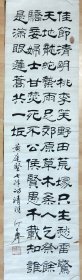 佳節清明桃李笑野田荒冢只生愁雷驚
天地龍蛇蟄雨足郊原草木柔人乞祭餘
驕妾婦士甘焚死不公侯賢愚千載知誰
是滿眼蓬蒿共一丘
黃庭堅七律詩清明